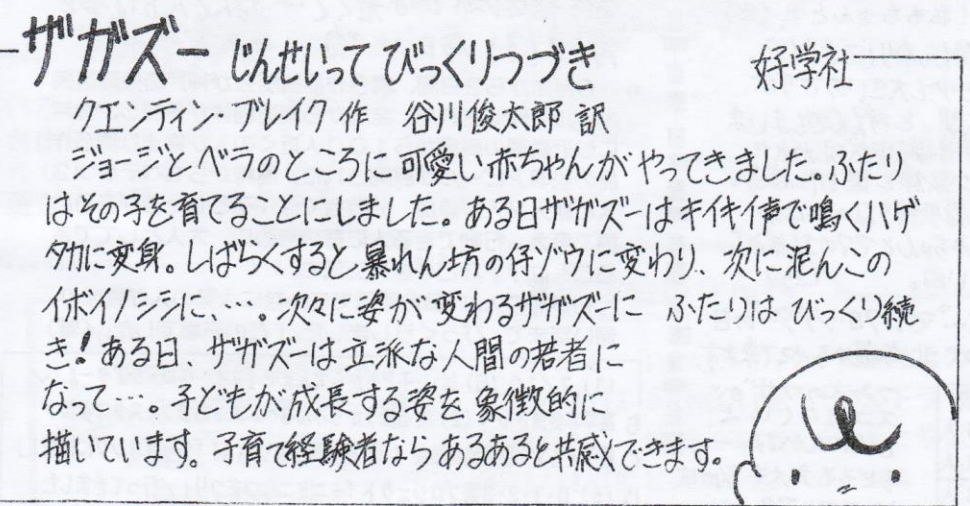 ザガズー じんせいって びっくりつづき
好学社
クエンティン・ブレイク 作 谷川俊太郎 訳
ジョージとベラのところに可愛い赤ちゃんがやってきました。ふたり
はその子を育てることにしました。ある日ザガズーはキイキイ声で鳴くハゲ
タカに変身。しばらくすると、暴れん坊の仔ゾウに変わり、次に泥んこの
イボイノシシに、…。次々に姿が変わるザガズーに ふたりはびっくり続
き!ある日、ザガズーは立派な人間の若者に
なって…。子どもが成長する姿を象徴的に
描いています。子育て経験者ならあるあると共感できます。